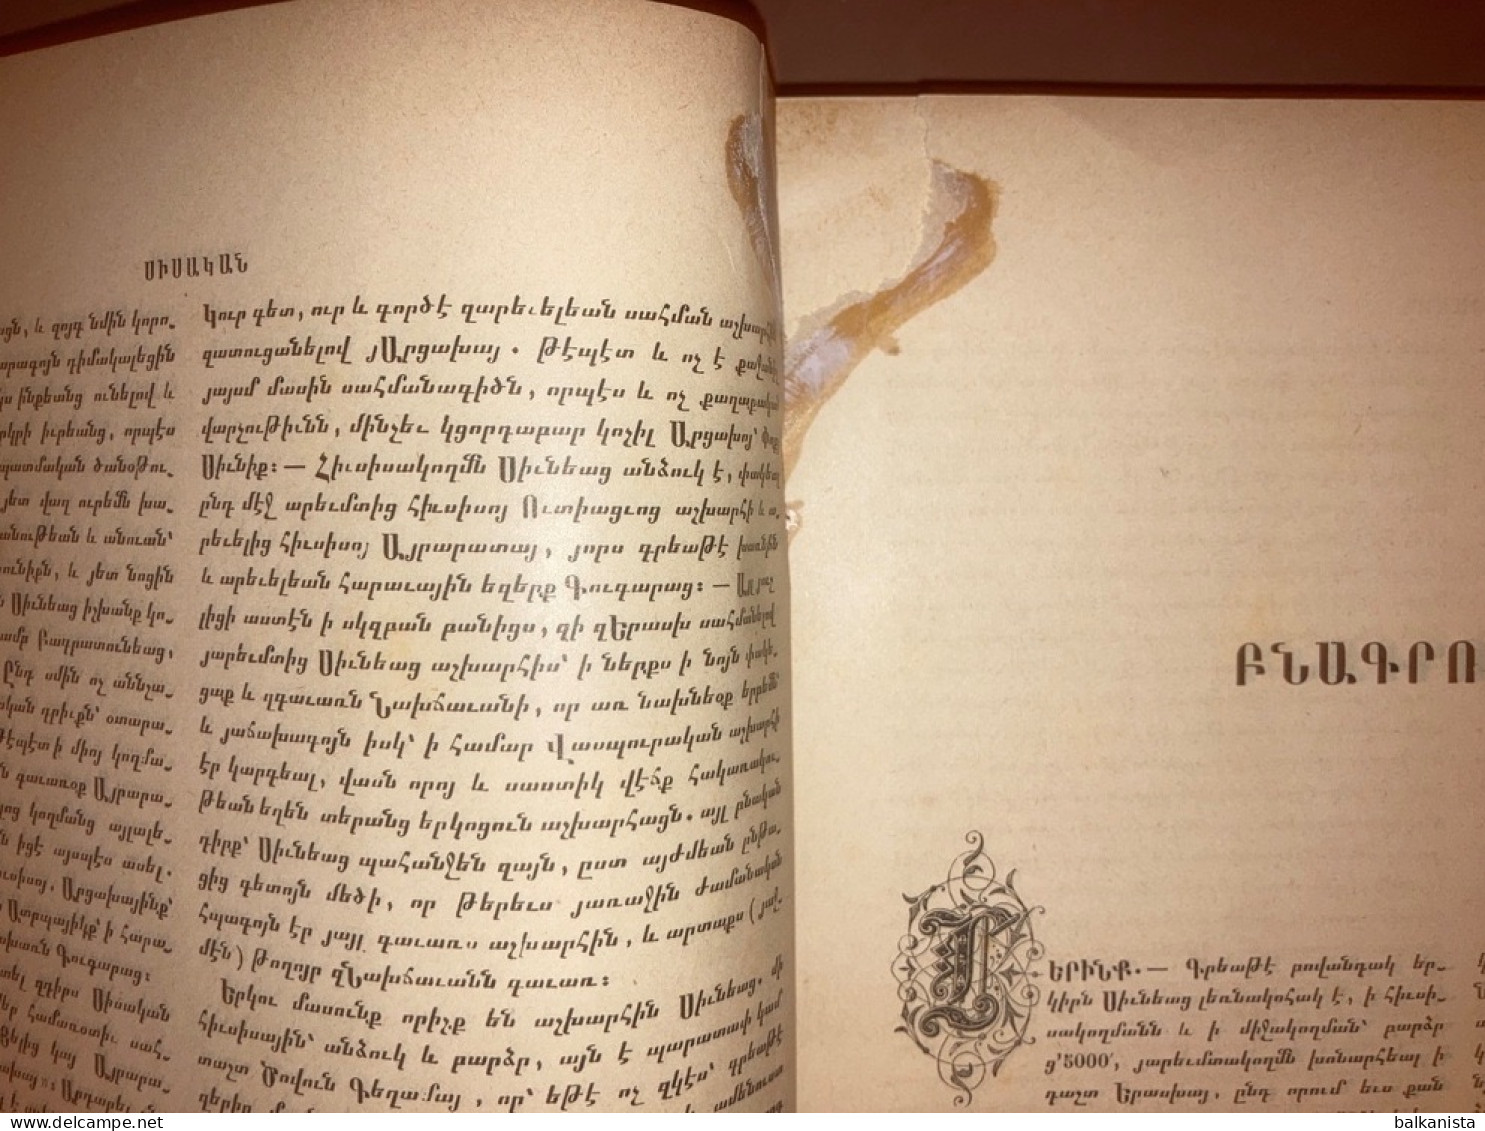 ՍԻՍԱԿԱՆ
ցն, և զոյգ նմին կորո֊
արագոյն դիմակալեցին
ինքեանց ունելով և
իւրեանց, որպէս
պատմական ծանօթու֊
յետ վաղ ուրեմն խա֊
անութեան և անուան՝
ունիքն, և յետ նոցին
Սիւնեաց իշխանք կո֊
Բագրատունեաց,
Ընդ սմին ոչ աննշա֊
ական դրիւքն՝ օտարա֊
թէպէտ ի միոյ կողմա֊
ն գաւառօք Այրարա֊
կողմանց այլալե֊
իցէ այսպէս ասել.
Արցախայինք՝
Ատրպայիկք՝ ի հարա֊
Գուգարաց։
զդիրս Սիսական
համառօտիւ սահ֊
կայ Այրարա֊
կուր գետ, ուր և գործէ զարեւելեան սահման աշխարհի
զատուցանելով յԱրցախայ. թէպէտ և ոչ է քաջանիշ
յայսմ մասին սահմանագիծն, որպէս և ոչ քաղաքական
վարչութիւնն, մինչեւ կցորդաբար կոչիլ Արցախոյ՝ Փոքր
Սիւնիք։ — Հիւսիսակողմն Սիւնեաց անձուկ է, փակեալ
ընդ մէջ արեւմտից հիւսիսոյ Ուտիացւոց աշխարհի և ա֊
րեւելից հիւսիսոյ Այրարատայ, յորս գրեաթէ խառնին
և արեւելեան հարաւային եզերք Գուգարաց։ — Այլ յուշ
լիցի աստէն ի սկզբան բանիցս, զի զԵրասխ սահմանելով
յարեւմտից Սիւնեաց աշխարհիս՝ ի ներքս ի նոյն փակե֊
ցաք և զգաւառն Նախճաւանի, որ առ նախնեօք երբեմն
և յաճախագոյն իսկ՝ ի համար Վասպուրական աշխարհի
էր կարգեալ, վասն որոյ և սաստիկ վէճք հակառակու֊
թեան եղեն տերանց երկոցուն աշխարհացն. այլ բնական
դիրք՝ Սիւնեաց պահանջեն զայն, ըստ այժմեան ընթա֊
ցից գետոյն մեծի, որ թերեւս յառաջին ժամանակին
հպագոյն էր յայլ գաւառս աշխարհին, և արտաքս (յալ֊
մէն) թողոյր զՆախճաւանն գաւառ։
Երկու մասունք որիշք են աշխարհին Սիւնեաց. մի
հիւսիսային՝ անձուկ և բարձր, այն է պարատափ կամ
տաշտ Ծովուն Գեղամայ, որ՝ եթէ ոչ զկէս՝ գրեաթէ
զերիր
ամենուստ
ԲՆԱԳՐՈ
ԵՐԻՆՔ. — Գրեաթէ բովանդակ եր֊
կիրն Սիւնեաց լեռնակոհակ է, ի հիւսի֊
սակողմանն և ի միջակողման՝ բարձր
ց՚5000՛, յարեւմտակողմն խոնարհեալ ի
դաշտ Երասխայ, ընդ որում եւս քան
balkanista